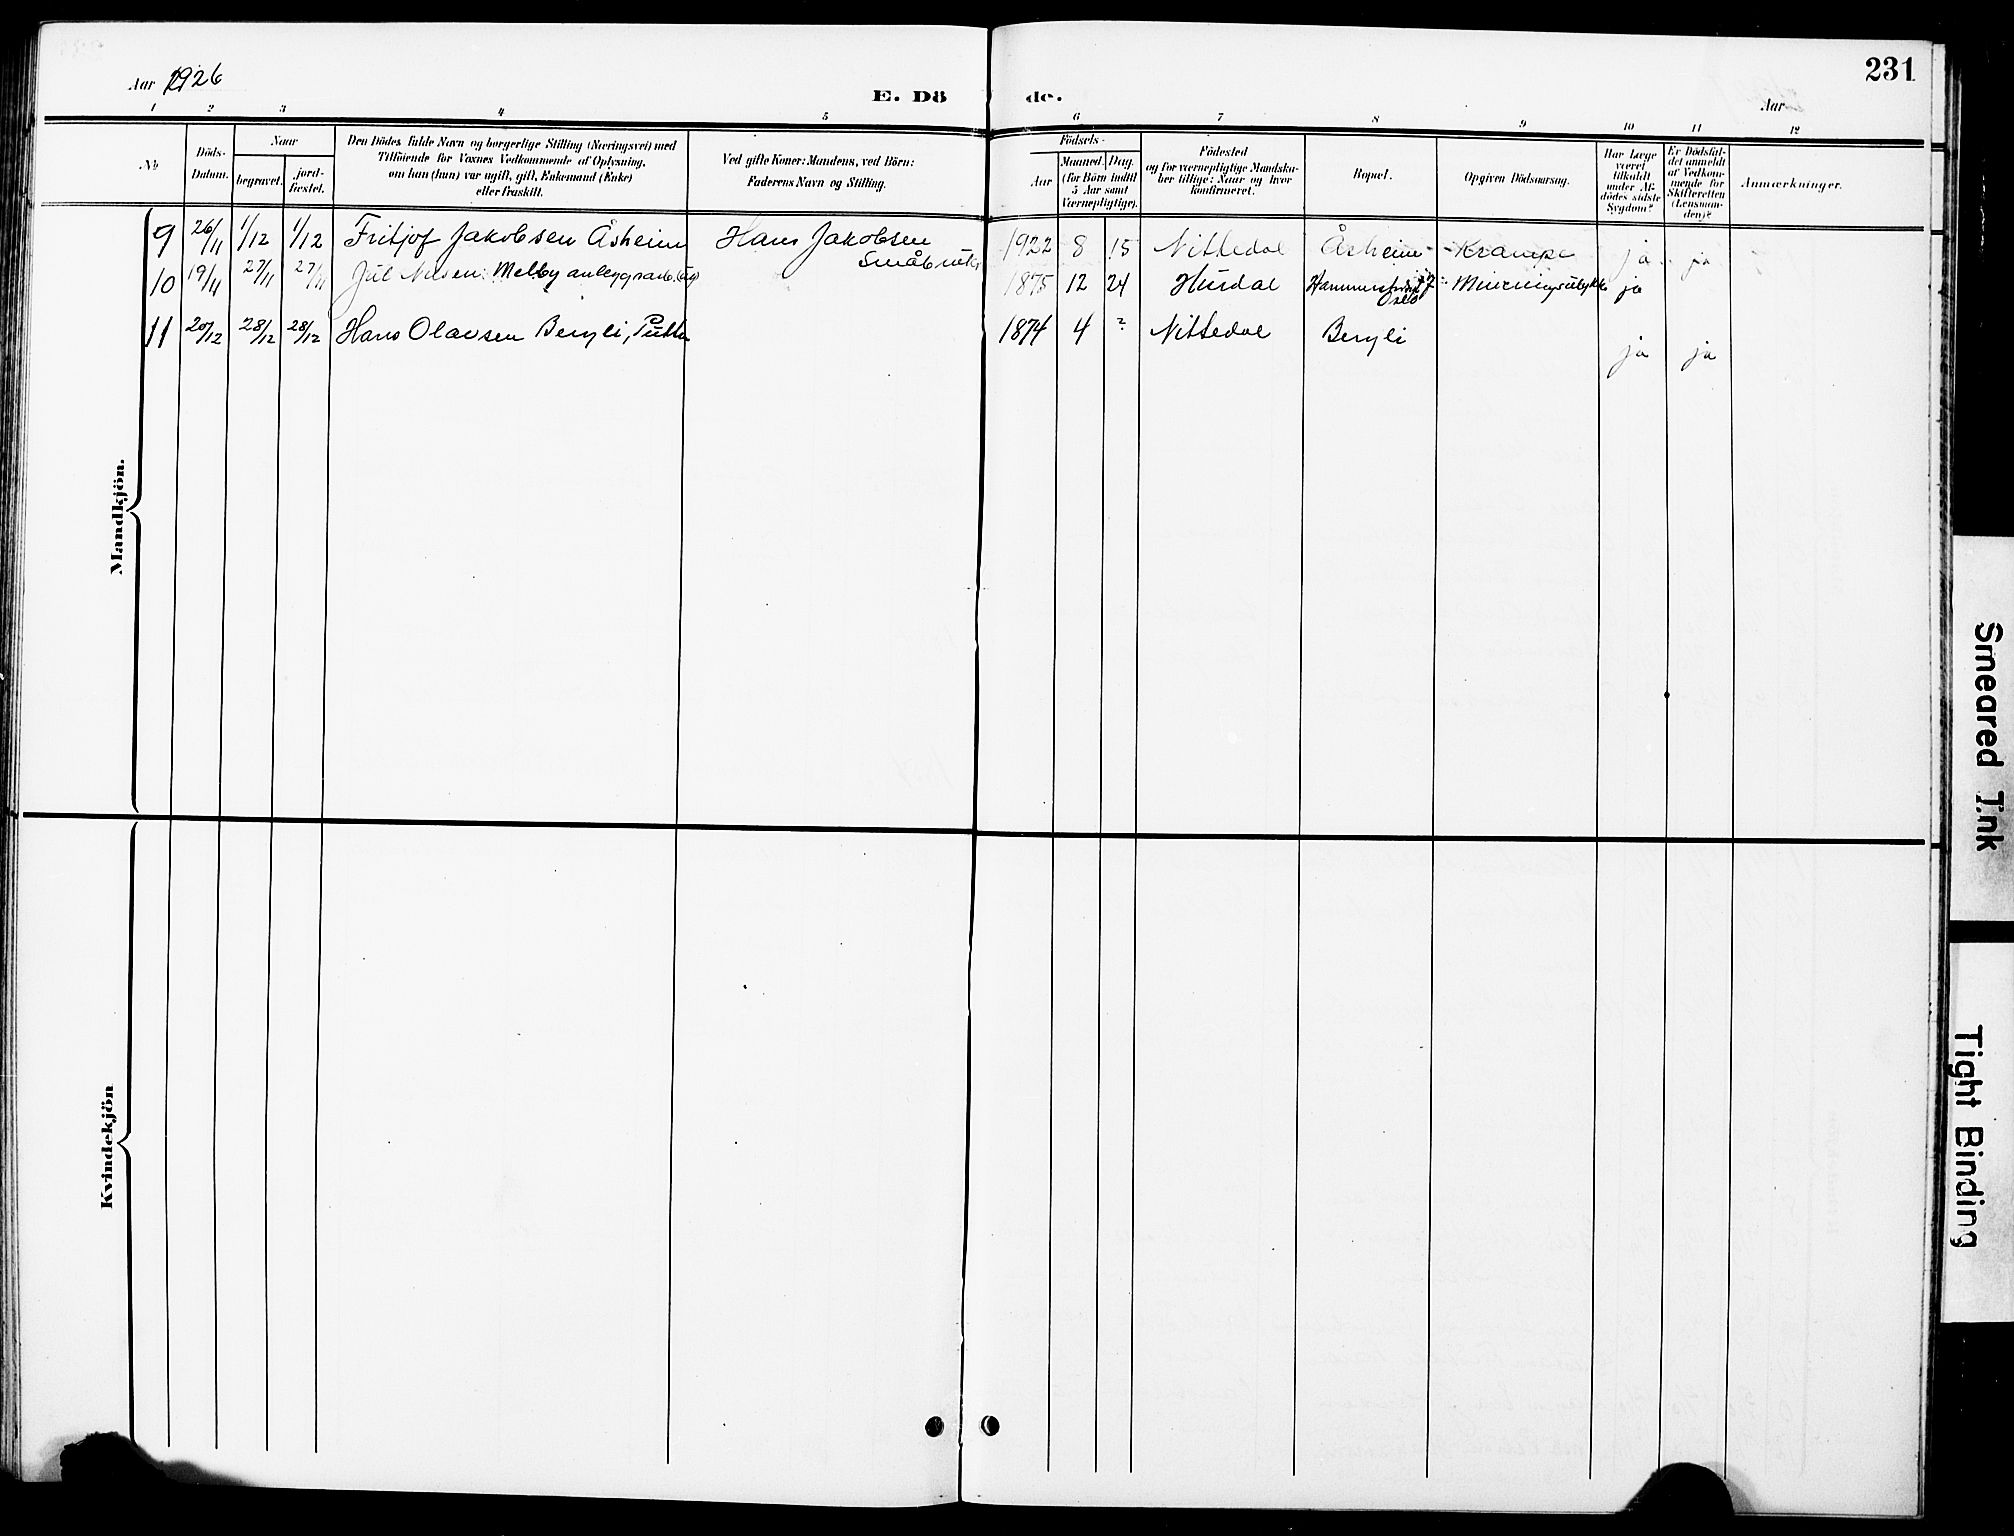 Aar 1926
E. Dö
de.
Aar
231
1 2 3 4 5 6 7 8 9 10 11 12
No
Döds-
Datum.
Naar
begravet.
jord-
fæstet.
Den Dödes fulde Navn og borgerlige Stilling (Næringsvei) med
Tilföiende for Voxnes Vedkommende af Oplysning,
om han (hun) var ugift, gift, Enkemand (Enke)
eller fraskilt.
Ved gifte Koner: Mandens, ved Börn:
Faderens Navn og Stilling.
Födsels-
Aar
Maaned. Dag.
(for Börn indtil
5 Aar samt
Værnepligtige).
Födested
og for værnepligtige Mandska-
ber tillige: Naar og hvor
konfirmeret.
Bopæl.
Opgiven Dödsaarsag.
Har Læge
været
tilkaldt
under Af-
dödes sidste
Sygdom?
Er Dödsfal-
det anmeldt
af Vedkom-
mende for
Skifteretten
(Lensman-
den)?
Anmærkninger.
Mandkjön.
9 26/11 1/12 1/12 Fritjof Jakobsen Åsheim Hans Jakobsen 1922 8 15 Nittedal Åsheim Krampe ja ja
Småbruker
10 19/11 27/11 27/11 Jul Nilsen Melby anleggsarb. (ug) 1875 12 24 Hurdal Mineringsulykke ja
Oslo
11 20/12 28/12 28/12 Hans Olavsen Bergli, 1874 4 ? Nittedal Bergli ja ja
Kvindekjön
Smeared Ink
Tight Binding